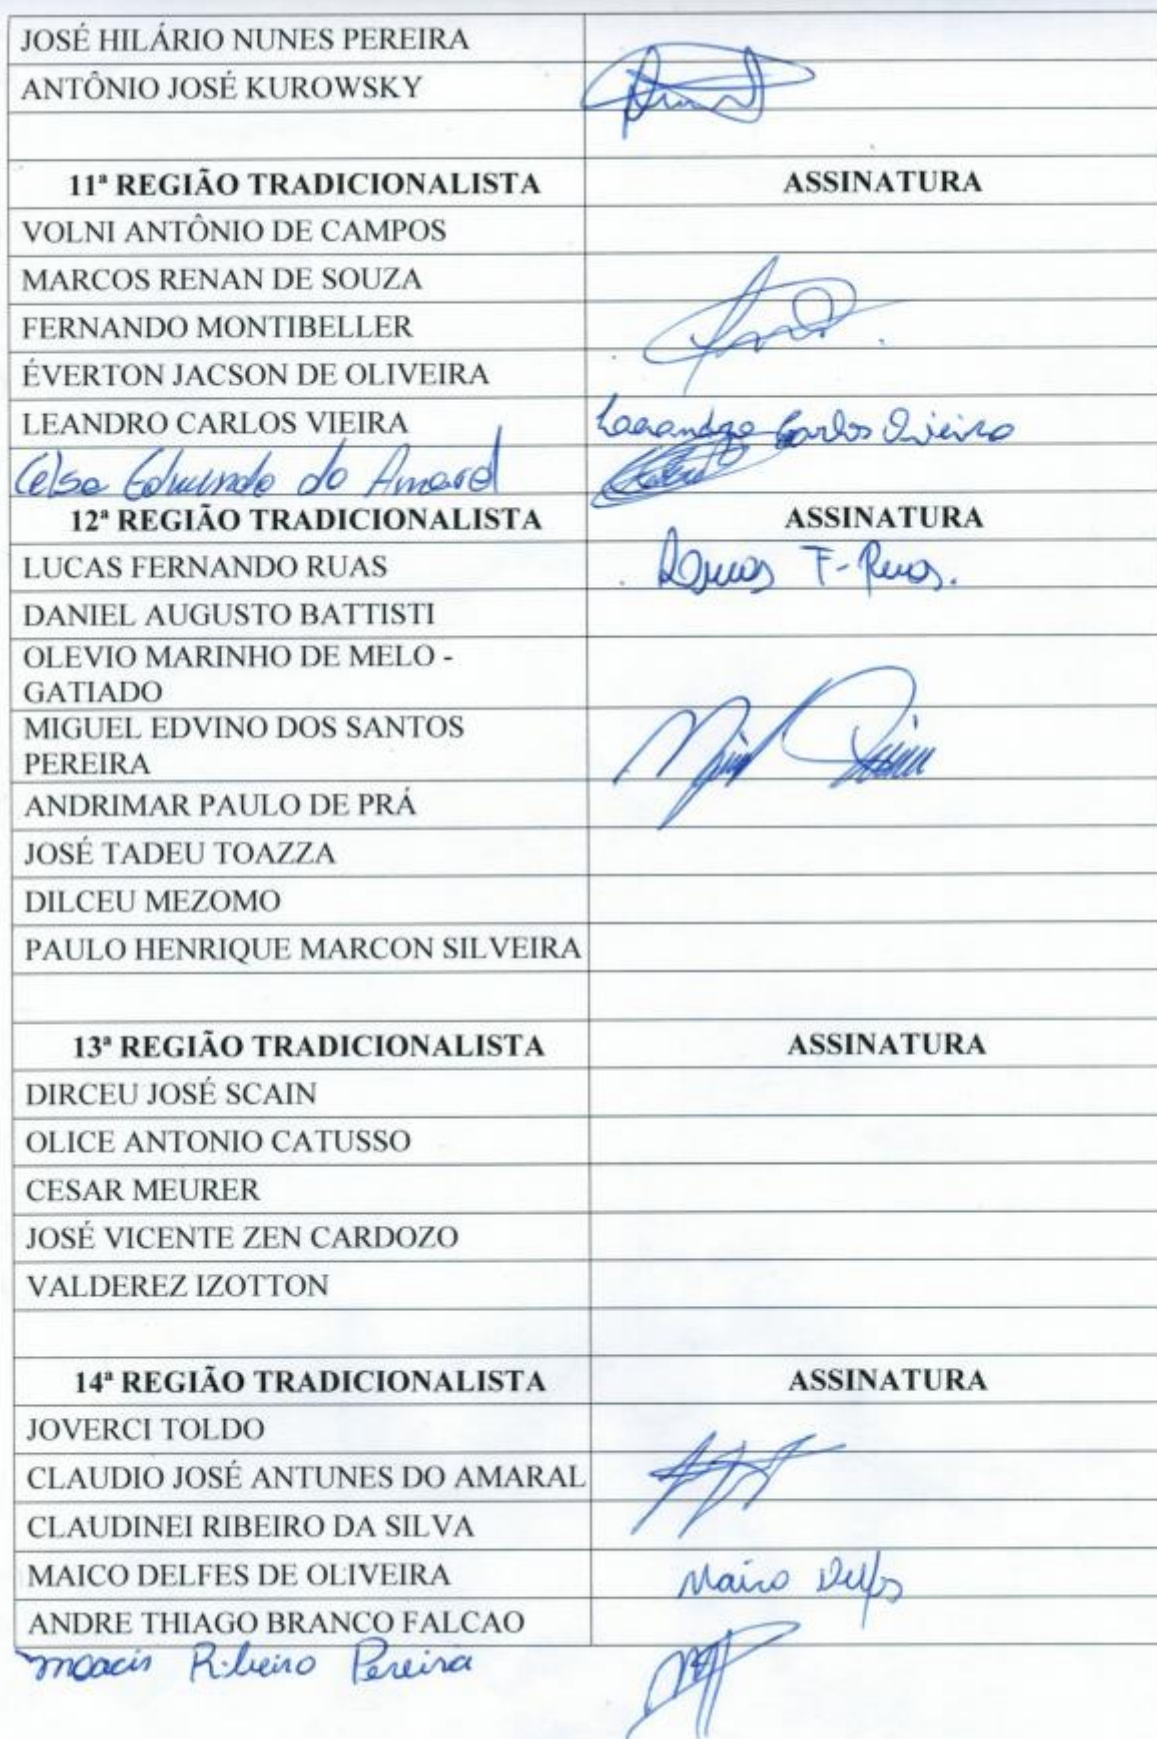 JOSÉ HILÁRIO NUNES PEREIRA
ANTÔNIO JOSÉ KUROWSKY
11ª REGIÃO TRADICIONALISTA ASSINATURA
VOLNI ANTÔNIO DE CAMPOS
MARCOS RENAN DE SOUZA
FERNANDO MONTIBELLER
ÉVERTON JACSON DE OLIVEIRA
LEANDRO CARLOS VIEIRA Leandro Carlos Vieira
Celso Edmundo do Amaral
12ª REGIÃO TRADICIONALISTA ASSINATURA
LUCAS FERNANDO RUAS F. Ruas.
DANIEL AUGUSTO BATTISTI
OLEVIO MARINHO DE MELO -
GATIADO
MIGUEL EDVINO DOS SANTOS
PEREIRA
ANDRIMAR PAULO DE PRÁ
JOSÉ TADEU TOAZZA
DILCEU MEZOMO
PAULO HENRIQUE MARCON SILVEIRA
13ª REGIÃO TRADICIONALISTA ASSINATURA
DIRCEU JOSÉ SCAIN
OLICE ANTONIO CATUSSO
CESAR MEURER
JOSÉ VICENTE ZEN CARDOZO
VALDEREZ IZOTTON
14ª REGIÃO TRADICIONALISTA ASSINATURA
JOVERCI TOLDO
CLAUDIO JOSÉ ANTUNES DO AMARAL
CLAUDINEI RIBEIRO DA SILVA
MAICO DELFES DE OLIVEIRA Maico Delfes
ANDRE THIAGO BRANCO FALCAO
Moacir Ribeiro Pereira